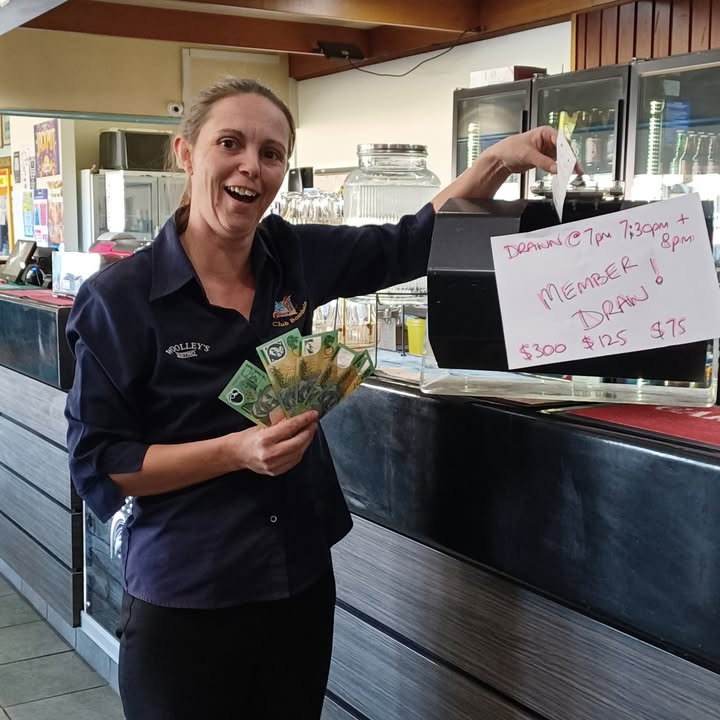 DRAWN @ 7pm 7:30pm +
8pm
MEMBER
DRAW!
$300 $125 $75
WOOLLEY'S